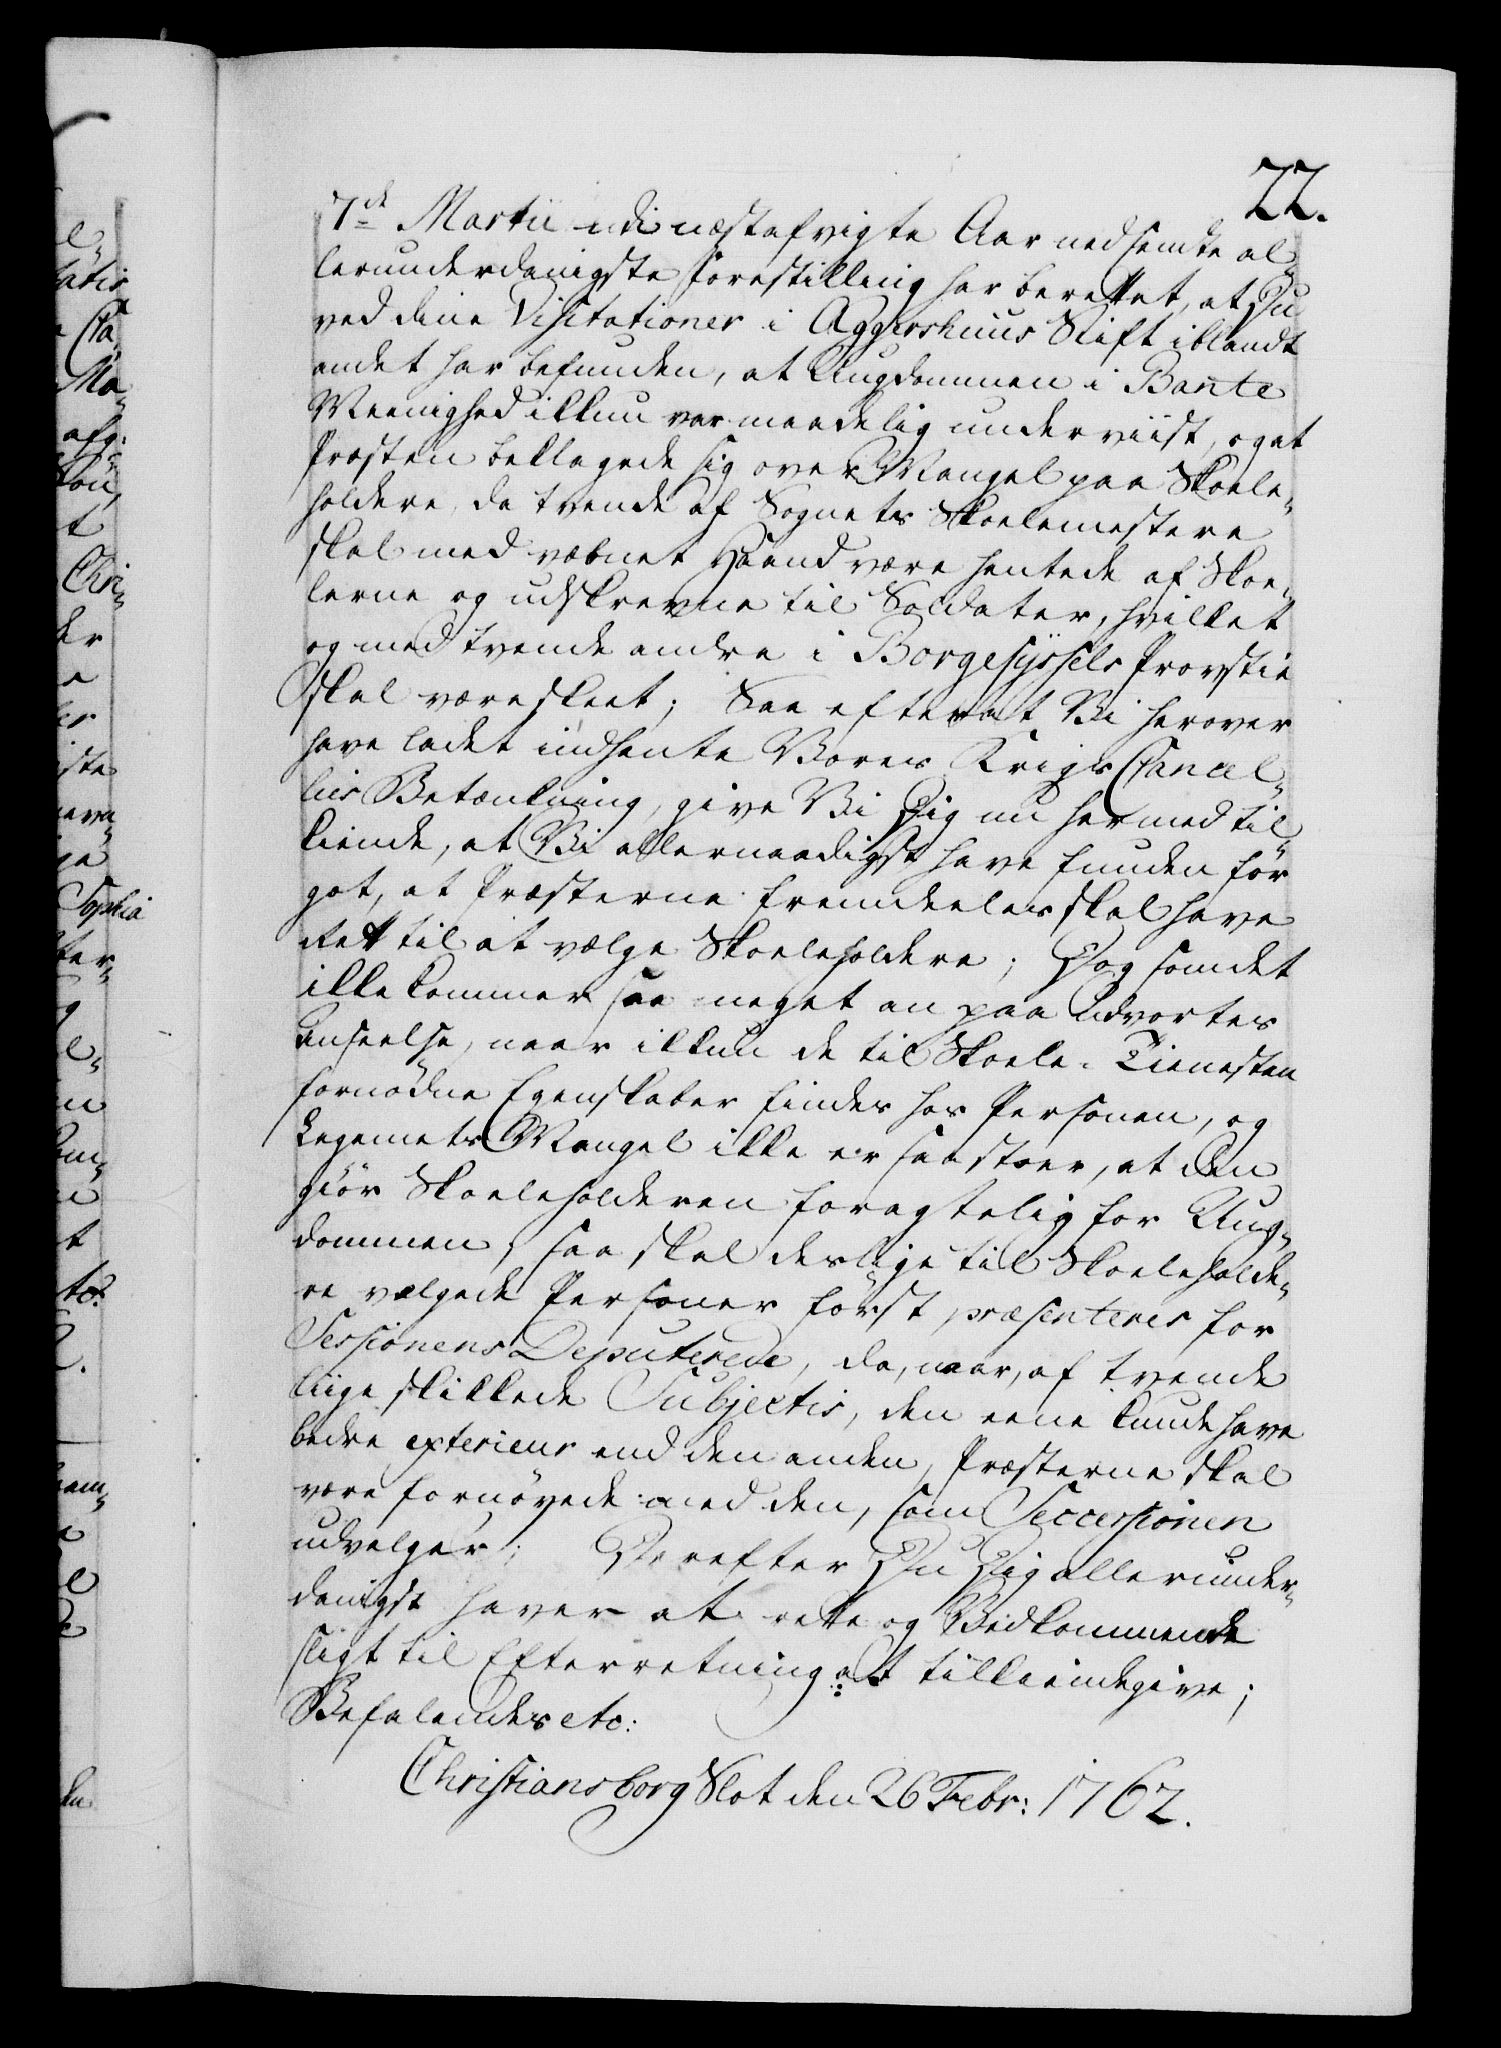 22.
7de Martii udi næstafvigte Aar nedsendte al„
lerunderdanigste Forestilling har berettet, at Du
ved dine Visitationer i Aggershuus Stift iblandt
andet har befunden, at Ungdommen i Bante
Meenighed ikkun var maadelig underviist, og at
Præsten beklagede sig over Mangel paa Skole„
holdere, da tvende af Sognets Skolemestere
skal med væbnet Haand være hentede af Skoe„
lerne og udskrevne til Soldater, hvilket
og med tvende andre i Borgesyssels Provstie
skal være skeet; Saa efterat Vi herover
have ladet indhente Vores Krigs Cancel„
lies Betænkning, give Vi Dig nu hermed til„
kiende, at Vi allernaadigst have funden for
got, at Præsterne fremdeeles skal have
Rett til at vælge Skoleholdere; Dog som det
ikke kommer saa meget an paa Udvortes
Anseelse, naar ikkun de til Skole-Tienesten
fornødne Egenskaber findes hos Personen, og
Legemets Mangel ikke er saa stoer, at den
giør Skoeleholderen foragtelig for Ung„
dommen, saa skal deslige til Skoleholde„
re valgede Personer först præsenteres for
Sessionens Deputerede, da, naar, af tvende
liige skikkede Subjectis, den eene kunde have
bedre exterieur end den anden, Præsterne skal
være fornöyede med den, som Seccessionen
udvelger; Derefter Du Dig allerunder„
danigst haver at rette og Vedkommende
sligt til Efterretning at tilkiendegive;
Befalendes etc:
Christiansborg Slot den 26 Febr: 1762.